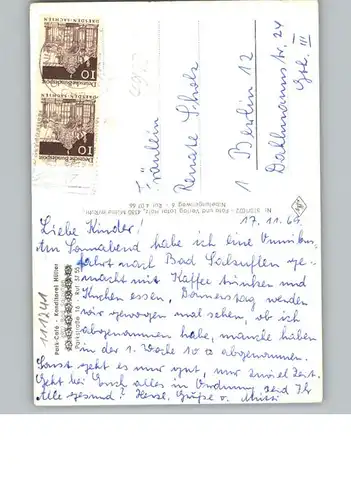 Deutsche Bundespost
DRESDEN-SACHSEN
10
Deutsche Bundespost
DRESDEN-SACHSEN
10
Fräulein
Renate Scholz
1 Berlin 12
Dahlmannstr. 24
Gh. III
Foto und Verlag Lothar
Nibelungenweg
Park-Café - Konditorei
Parkstraße
17.11.66
Liebe Kinder!
Am Sonnabend habe ich eine Omnibus-
fahrt nach Bad Salzuflen ge-
macht mit Kaffee trinken und
Kuchen essen, Donnerstag werden
wir gewogen mal sehen, ob ich
abgenommen habe, manche haben
in der 1. Woche 10 abgenommen.
Sonst geht es mir gut, nur zuviel Zeit.
Geht bei Euch alles in Ordnung, seid Ihr
Alle gesund? Herzl. Grüße v. Mutti